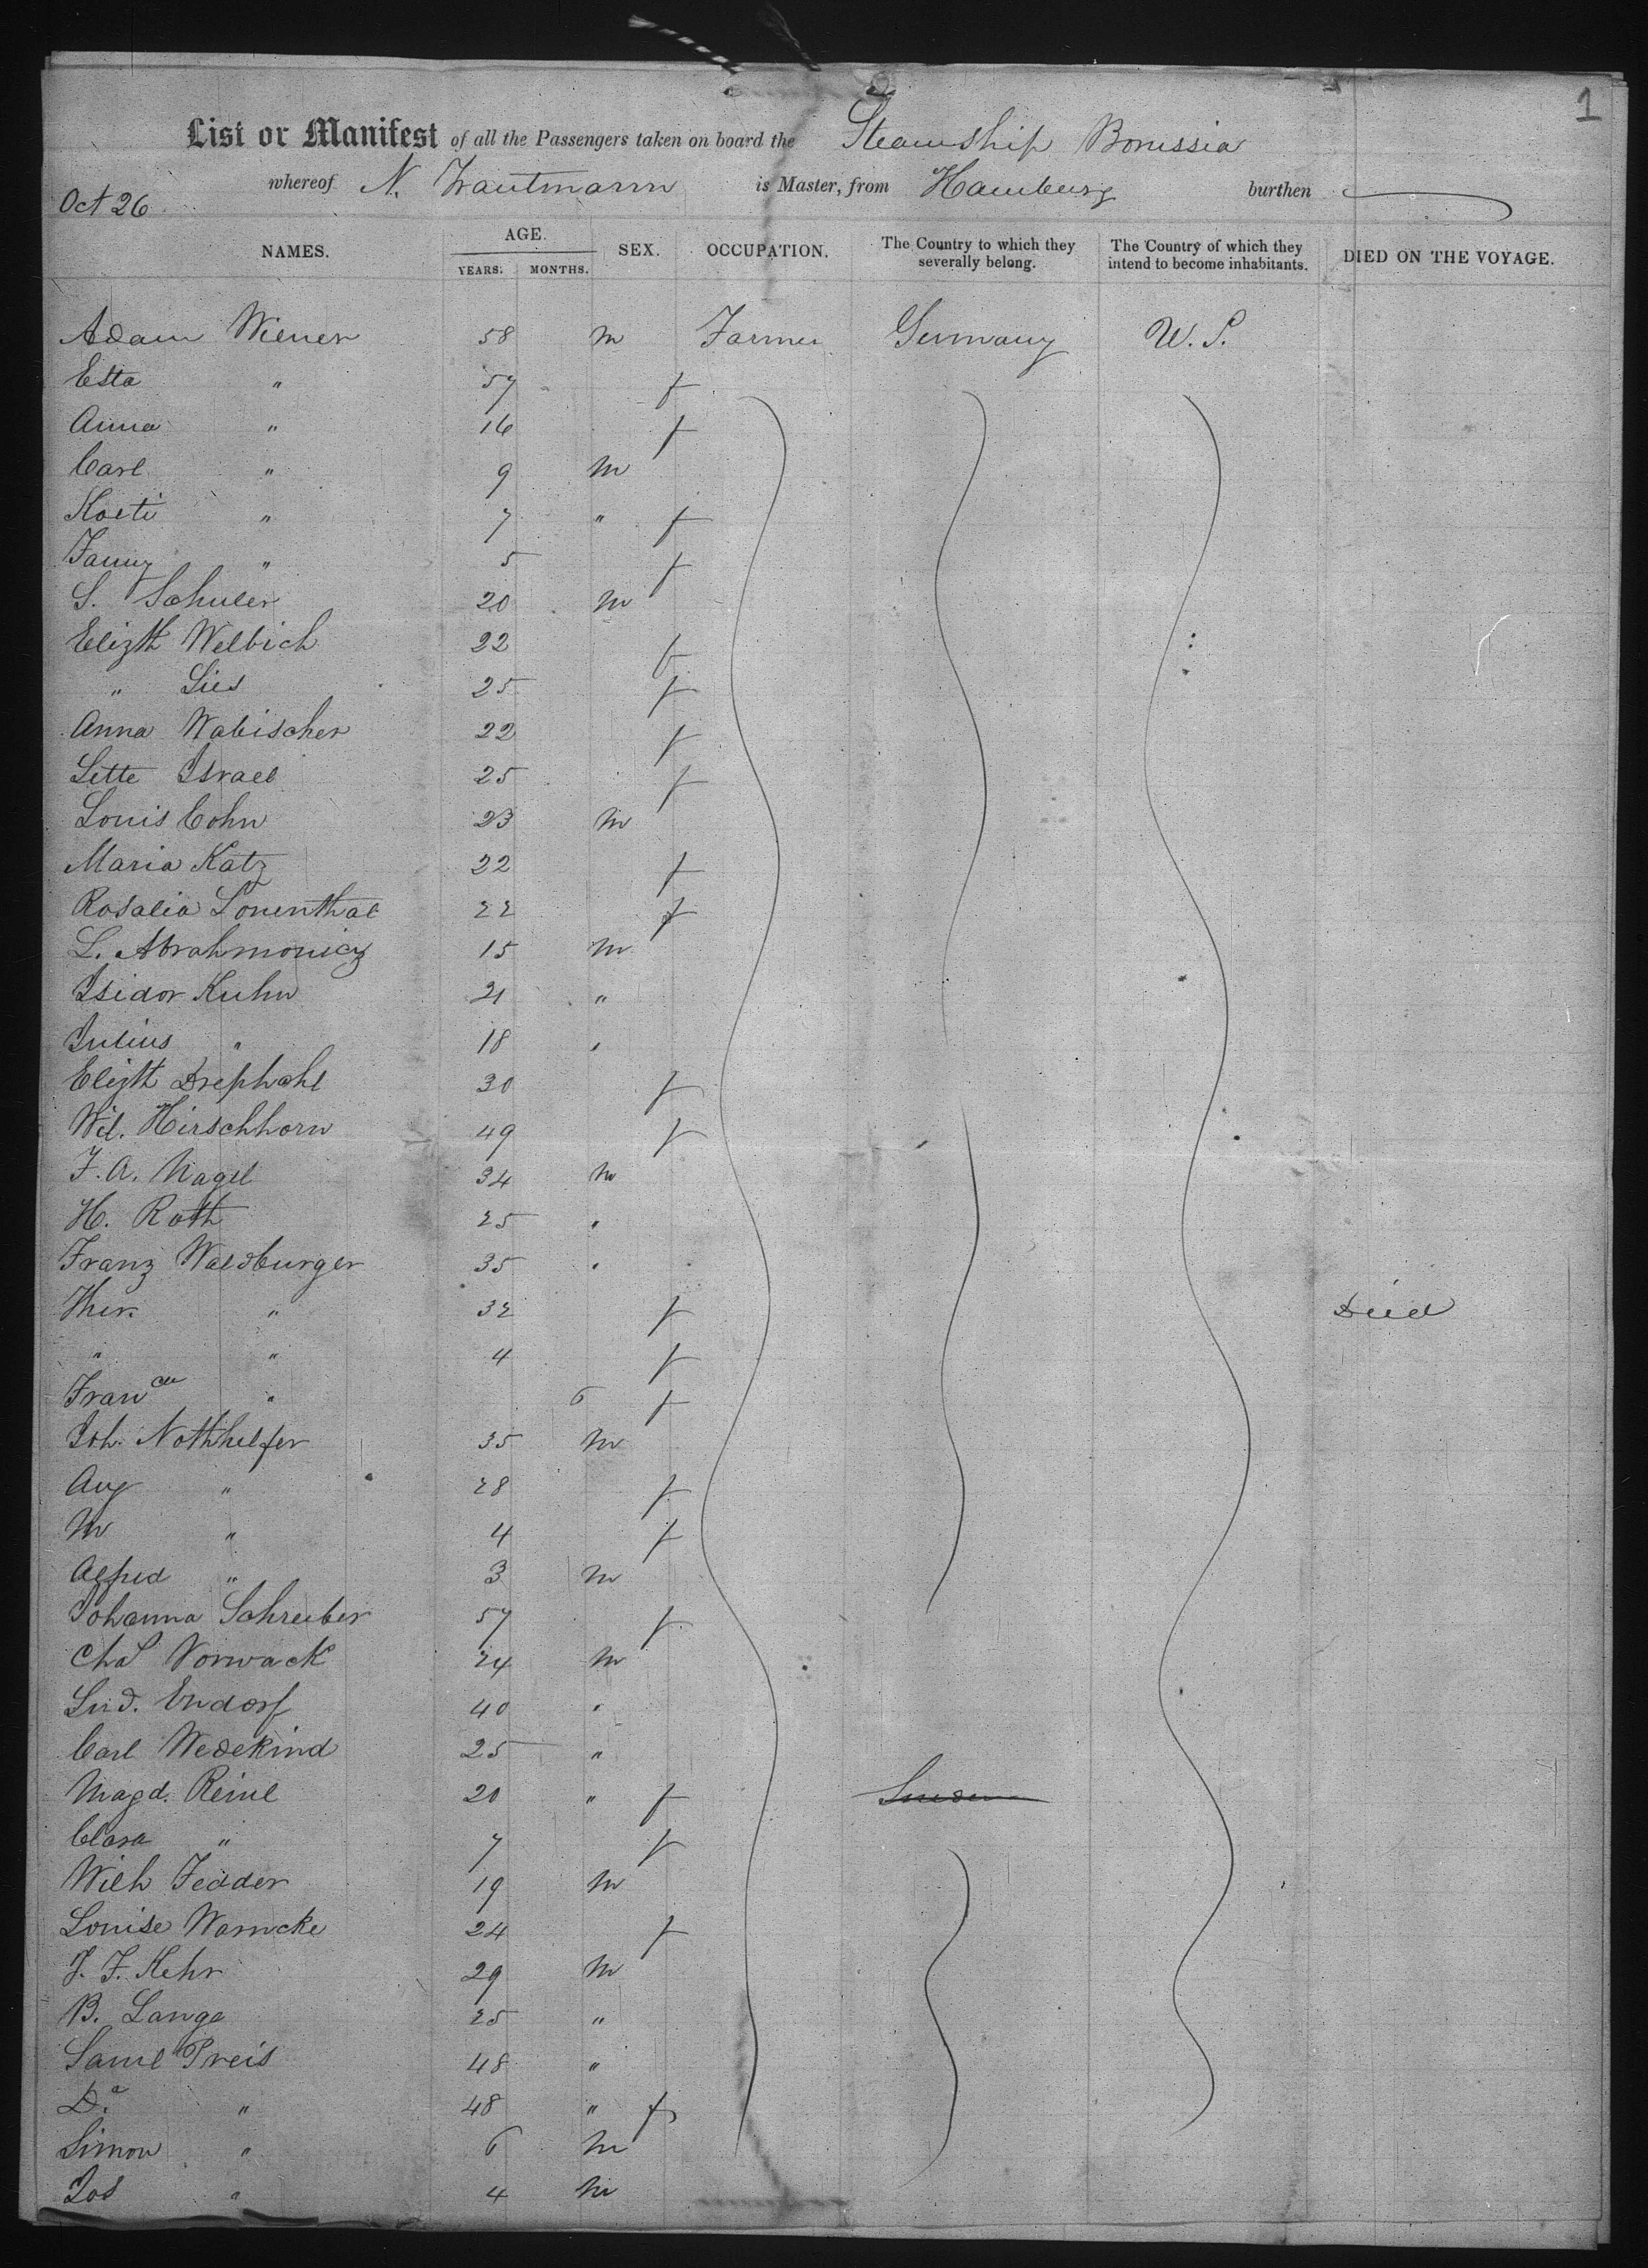 1
List or Manifest of all the Passengers taken on board the Steamship Borussia
whereof N. Trautmann is Master, from Hamburg burthen
Oct 26
NAMES. AGE. YEARS. MONTHS. SEX. OCCUPATION. The Country to which they severally belong. The Country of which they intend to become inhabitants. DIED ON THE VOYAGE.
Adam Wiener 58 m Farmer Germany U. S.
Esta " 57 f
Anna " 16 f
Carl " 9 m
Kaeti " 7 " f
Fanny " 5 f
S. Schuler 20 m
Elizth Welbich 22 f
" Lies 25 f
Anna Wabischer 22 f
Lette Israel 25 f
Louis Cohn 23 m
Maria Katz 22 f
Rosalia Lonenthal 22 f
L. Abrahmonicz 15 m
Isidor Kuhn 21 "
Julius " 18 "
Elizth Drephahl 30 f
Wil. Hirschhorn 49 f
F. A. Nagel 34 m
H. Roth 25 "
Franz Waldburger 35 "
Ther. " 32 f Died
" " 4 f
Franca " 6 f
Joh. Nothhelfer 35 m
Aug " 28 f
M " 4 f
Alfred " 3 m
Johanna Schreiber 57 f
Chas Vorwack 24 m
Lud. Endorf 40 "
Carl Wedekind 25 "
Magd. Reine 20 " f
Clara " 7 f
Wilh Fedder 19 m
Louise Warncke 24 f
J. F. Kehr 29 m
B. Lange 25 "
Saml Preis 48 "
Do " 48 " f
Simon " 6 m
Jos " 4 m